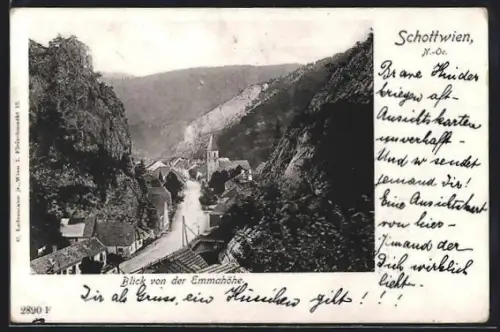 Schottwien,
N.-Oe.
Brave Kinder
kriegen oft
Ansichtskarten
unverhofft -
Und so sendet
jemand dir!
Eine Ansichtskart
von hier -
Jemand der
Dich wirklich
liebt.
C. Ledermann jr., Wien I. Fleischmarkt 12.
Blick von der Emmahöhe.
Dir als Gruss, ein gilt!!
2890 F